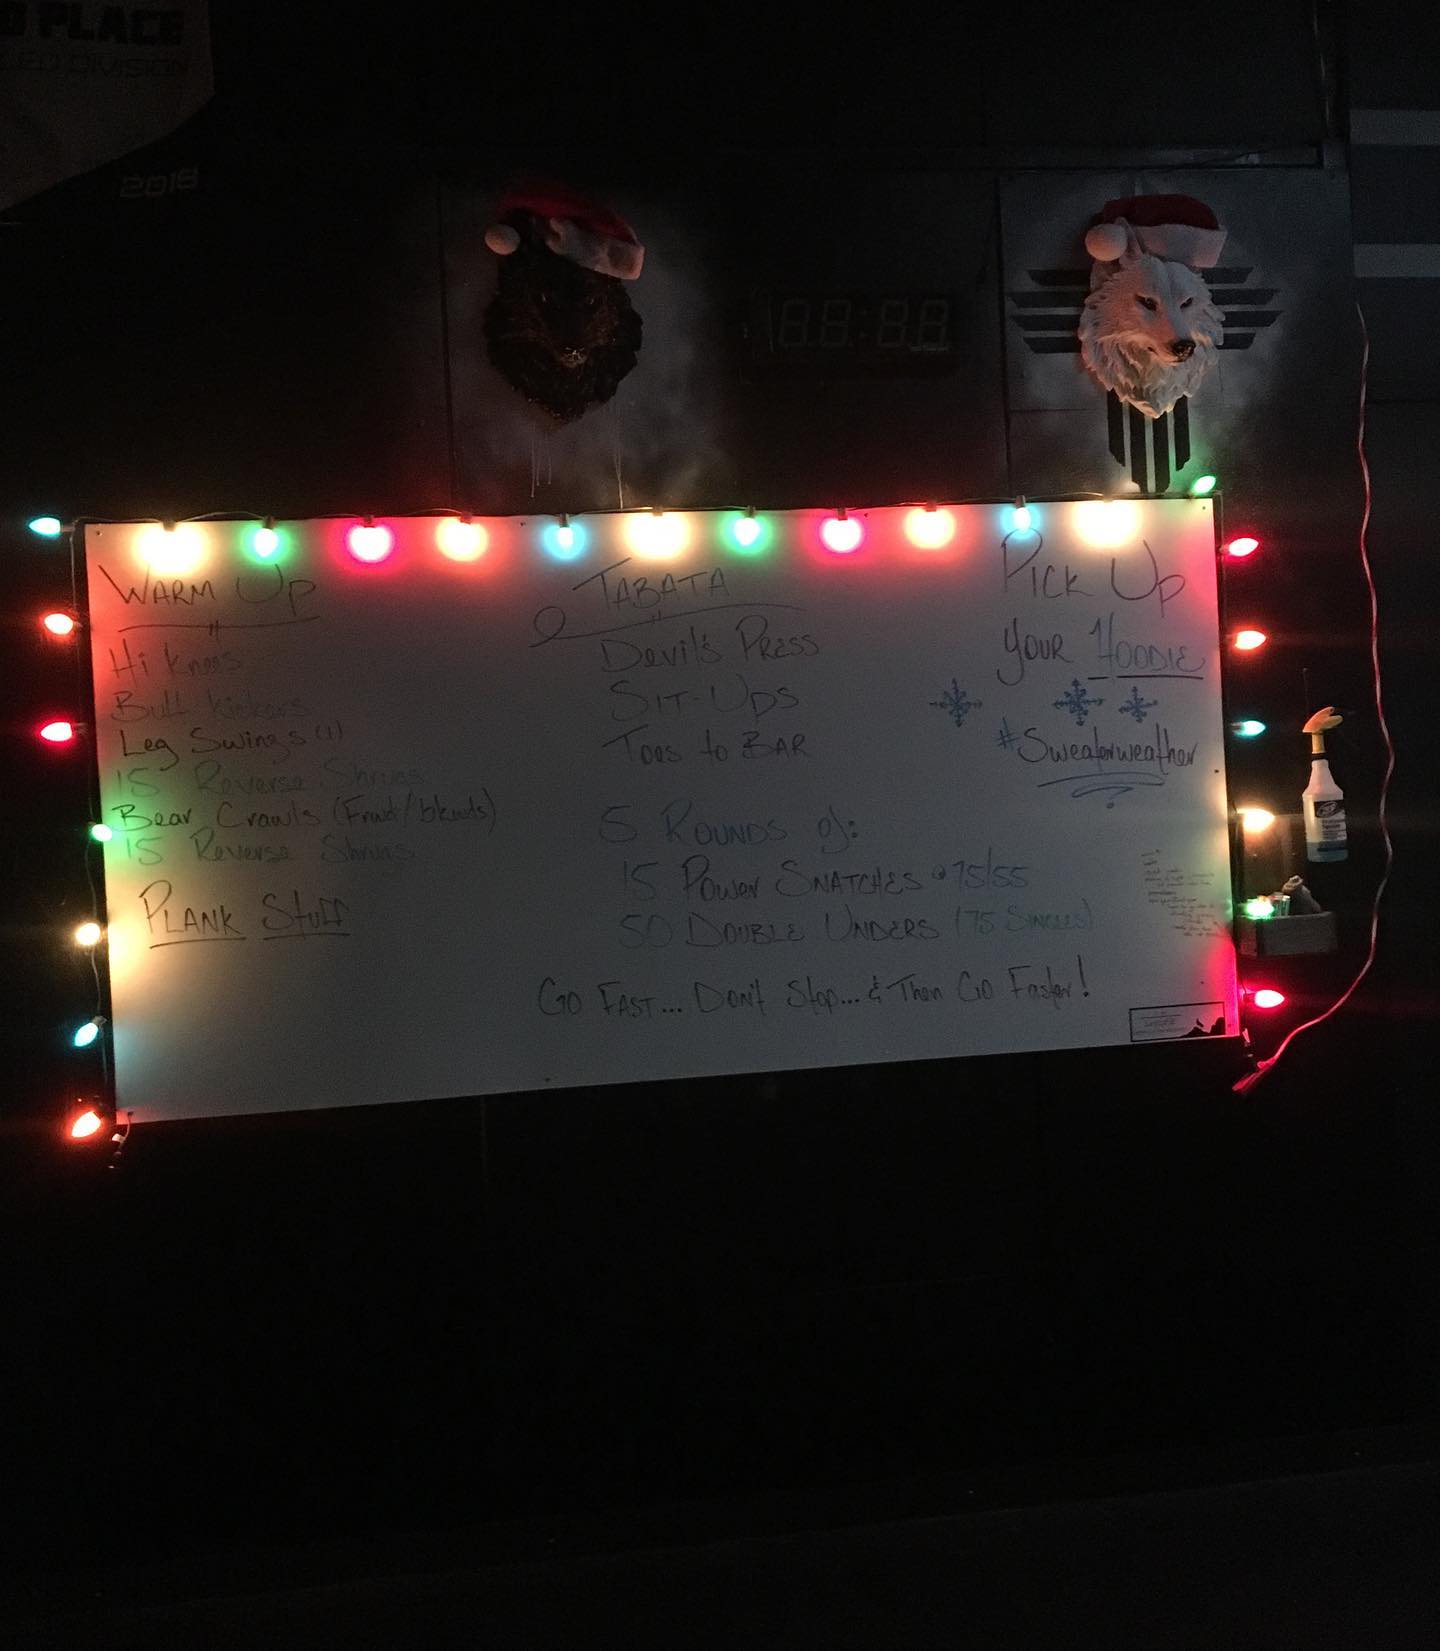 D PLACE
ED DIVISION
2018
WARM UP
Hi Knees
Butt kickers
Leg Swings (1)
15 Reverse Shrugs
Bear Crawls (Frwd/bkwds)
15 Reverse Shrugs
PLANK Stuff
TABATA
Devil's PRESS
SIT-UPS
Toes to BAR
5 ROUNDS of:
15 Power SNATCHES @ 75/55
50 DOUBLE UNDERS (75 SINGLES)
GO FAST... Don't Stop... & Then GO Faster!
PICK UP
YOUR HOODIE
#Sweaterweather